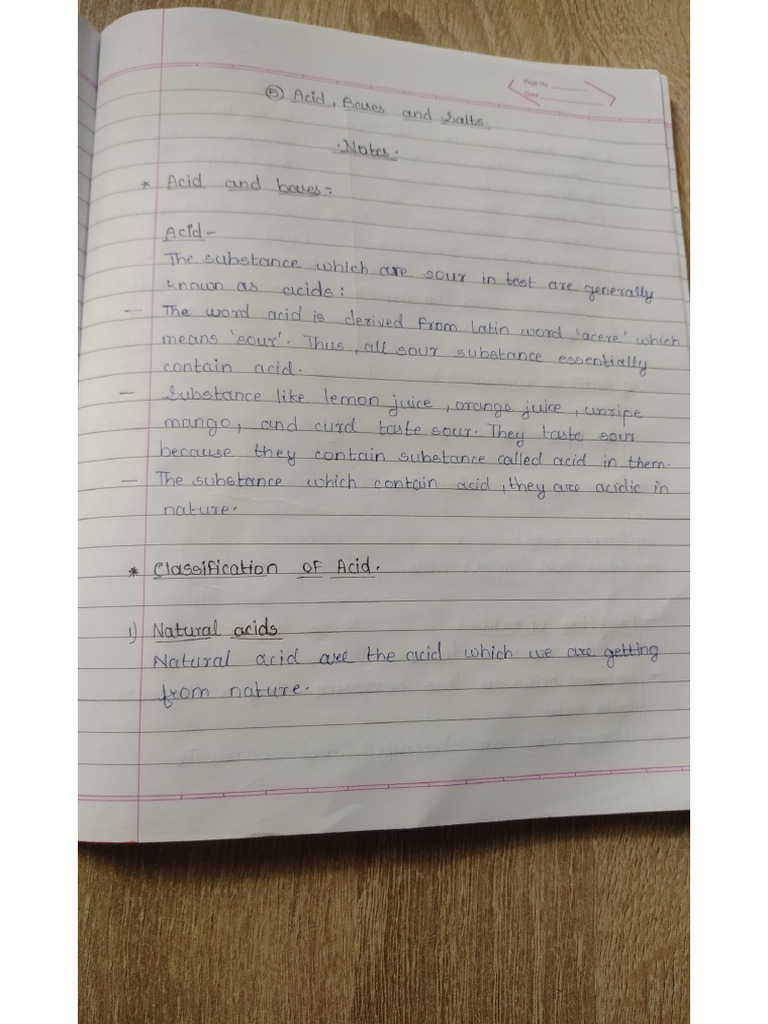 Page No.
Date
⑤ Acid, Bases and Salts.
.Notes.
* Acid and bases:
Acid-
The substance which are sour in test are generally
known as acids:
- The word acid is derived from Latin word 'acere' which
means 'sour'. Thus, all sour substance essentially
contain acid.
- Substance like lemon juice, orange juice, unripe
mango, and curd taste sour. They taste sour
because they contain substance called acid in them.
- The substance which contain acid, they are acidic in
nature.
* Classification OF Acid.
1) Natural acids
Natural acid are the acid which we are getting
from nature.